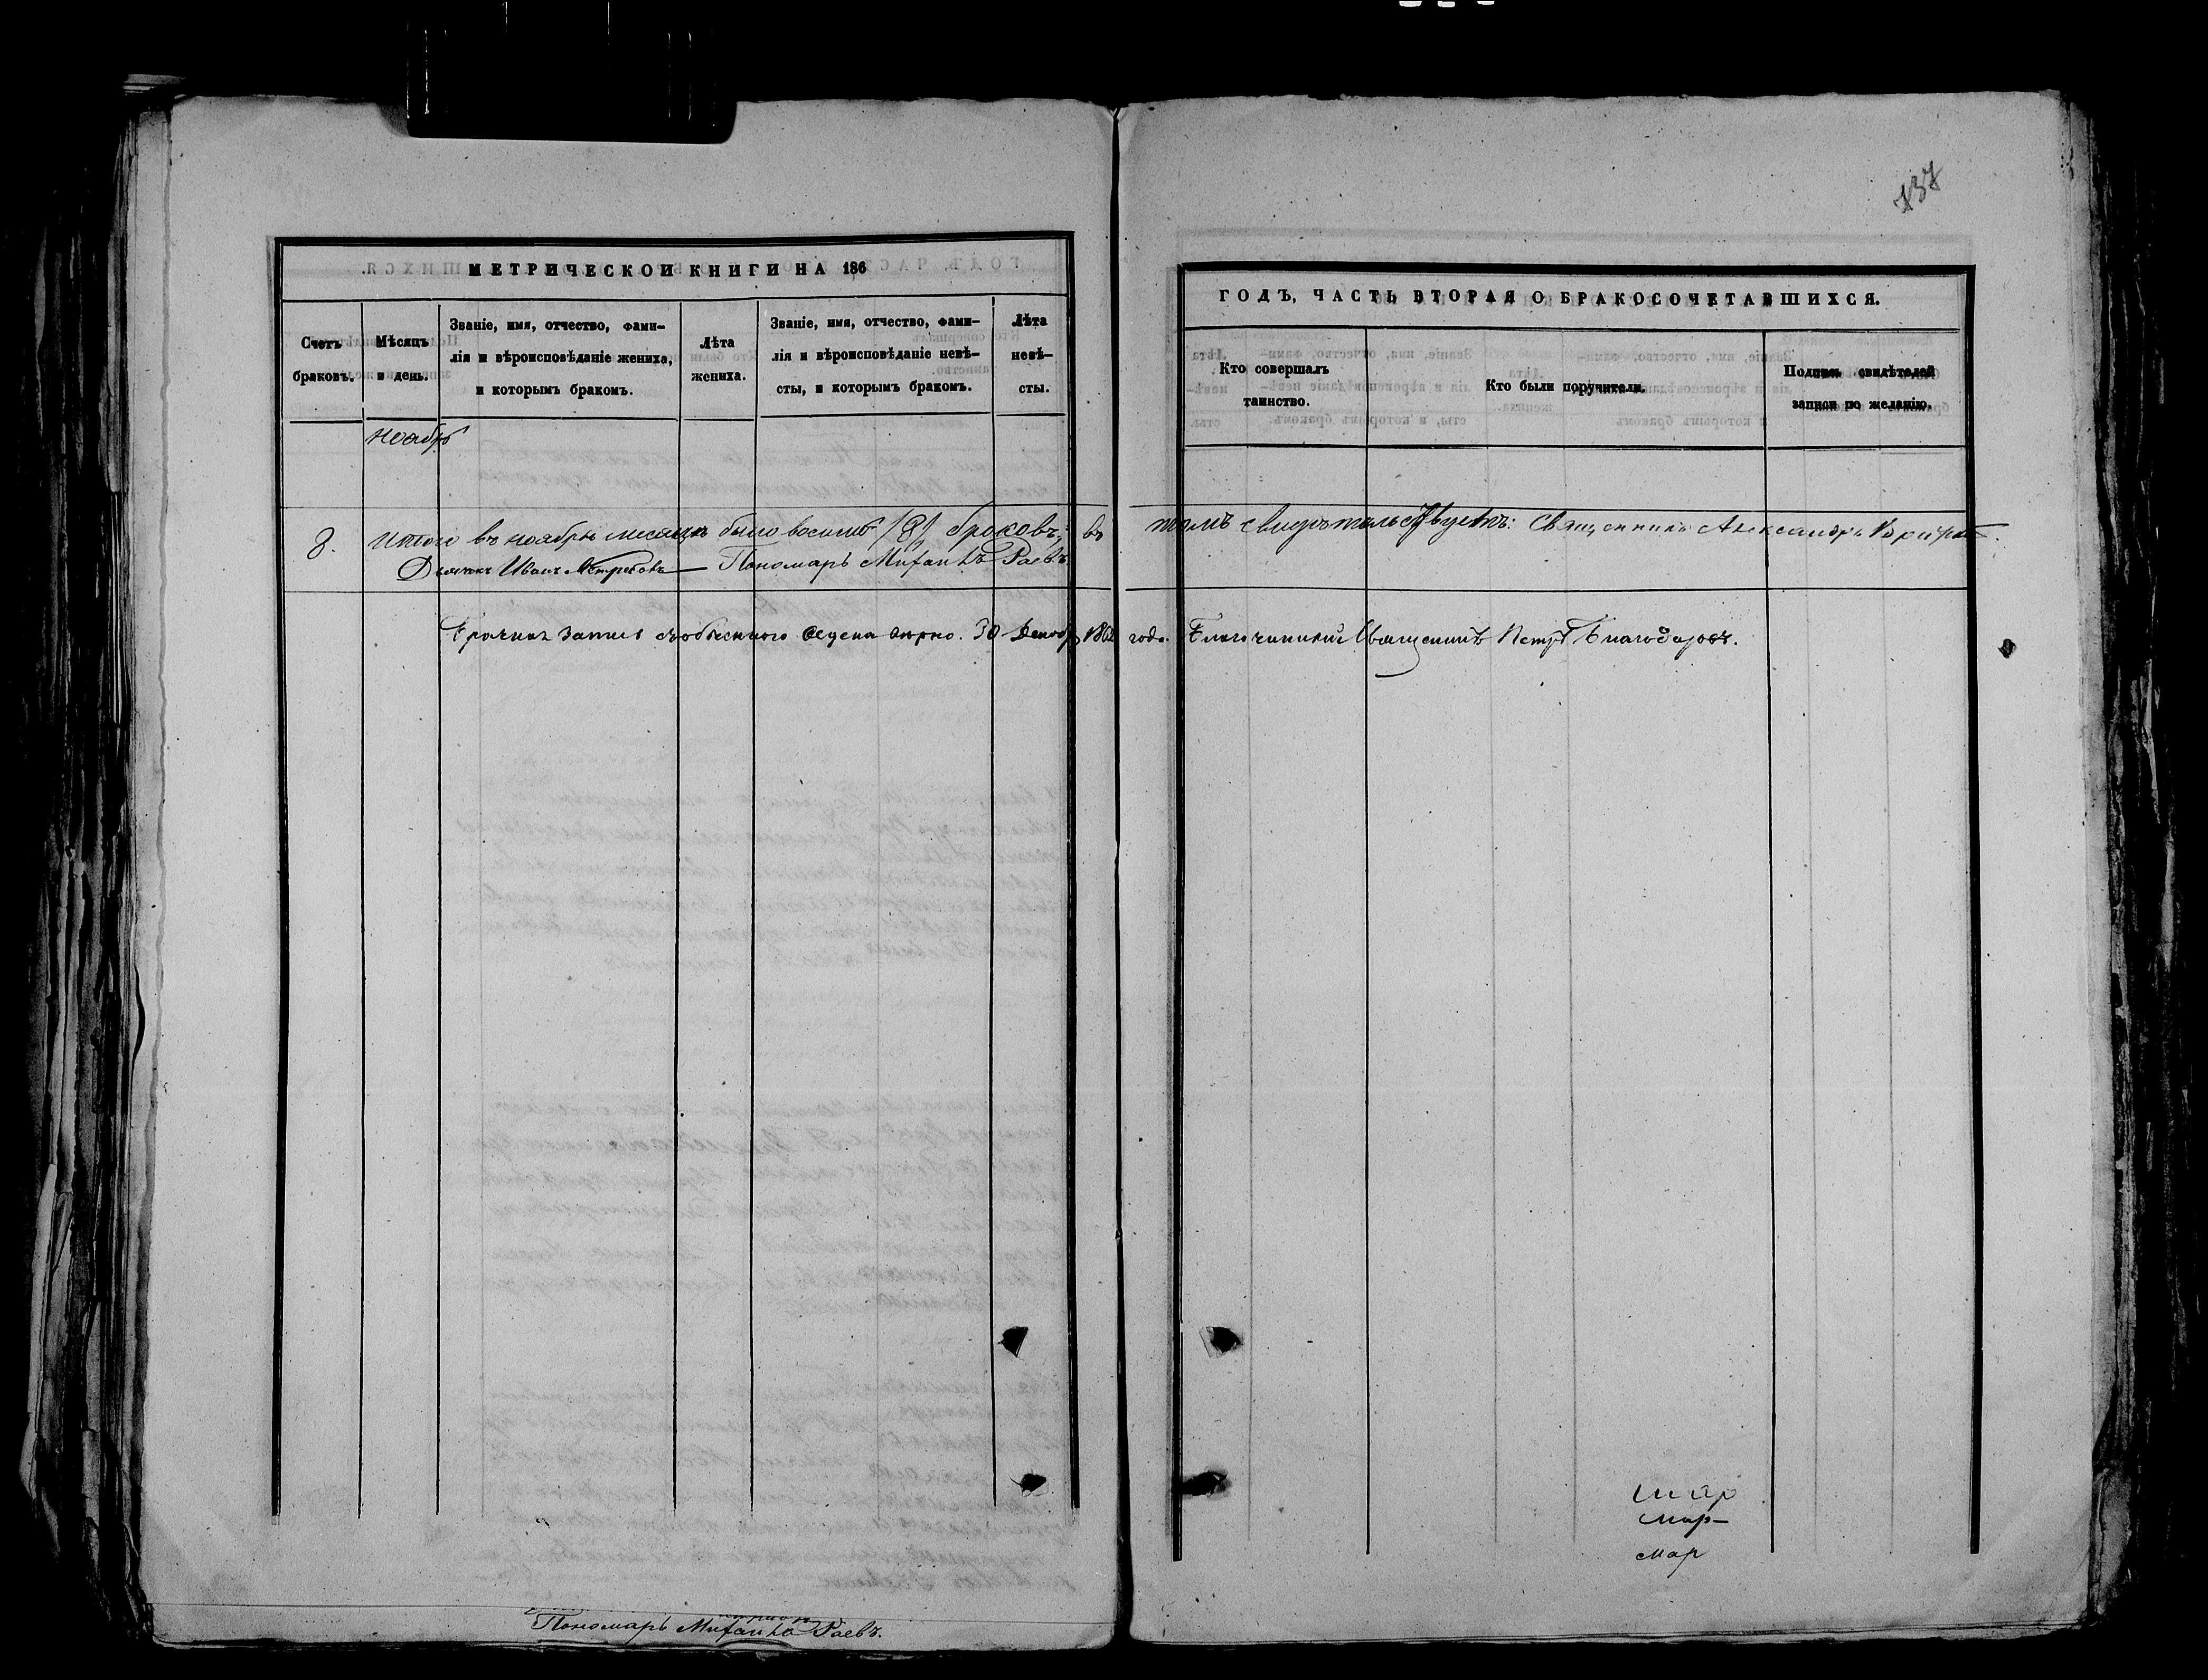 137
МЕТРИЧЕСКОЙ КНИГИ НА 186
ГОДЪ, ЧАСТЬ ВТОРАЯ О БРАКОСОЧЕТАВШИХСЯ.
Счетъ браковъ.
Мѣсяцъ и день.
Званіе, имя, отчество, фами-
лія и вѣроисповѣданіе жениха,
и которымъ бракомъ.
Лѣта
жениха.
Званіе, имя, отчество, фами-
лія и вѣроисповѣданіе невѣ-
сты, и которымъ бракомъ.
Лѣта
невѣ-
сты.
Кто совершалъ
таинство.
Кто были поручители.
Подпись свидѣтелей
записи по желанію.
Ноябрь
8. Итого въ ноябрѣ месяцѣ было восемь /8/ браковъ; въ томъ свидѣтельствуемъ: Священникъ Александръ
Дьячекъ Иванъ Пономарь Михаилъ Раевъ
запись 30 Декабр 1862 года. Благочинный Священникъ Петръ Благодаровъ.
мар
мар-
мар
Пономарь Михаилъ Раевъ.